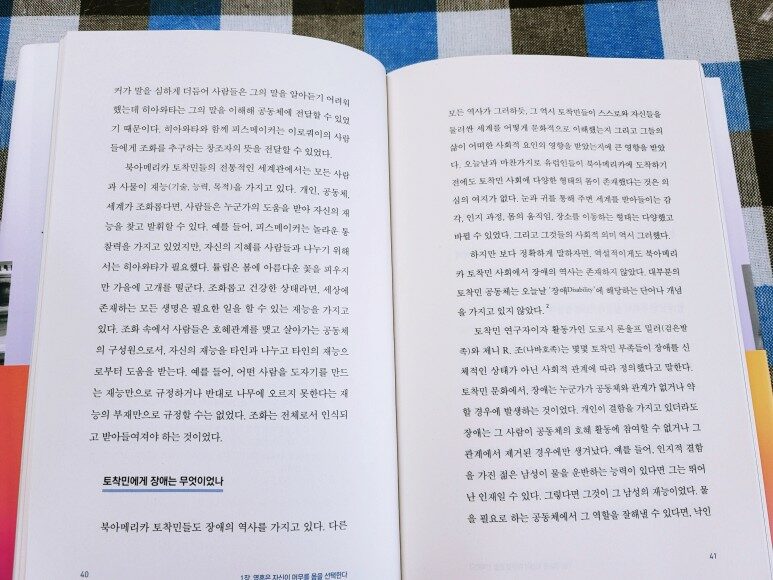 커가 말을 심하게 더듬어 사람들은 그의 말을 알아듣기 어려워
했는데 히아와타는 그의 말을 이해해 공동체에 전달할 수 있었
기 때문이다. 히아와타와 함께 피스메이커는 이로쿼이의 사람
들에게 조화를 추구하는 창조자의 뜻을 전달할 수 있었다.
북아메리카 토착민들의 전통적인 세계관에서는 모든 사람
과 사물이 재능(기술, 능력, 목적)을 가지고 있다. 개인, 공동체,
세계가 조화롭다면, 사람들은 누군가의 도움을 받아 자신의 재
능을 찾고 발휘할 수 있다. 예를 들어, 피스메이커는 놀라운 통
찰력을 가지고 있었지만, 자신의 지혜를 사람들과 나누기 위해
서는 히아와타가 필요했다. 튤립은 봄에 아름다운 꽃을 피우지
만 가을에 고개를 떨군다. 조화롭고 건강한 상태라면, 세상에
존재하는 모든 생명은 필요한 일을 할 수 있는 재능을 가지고
있다. 조화 속에서 사람들은 호혜관계를 맺고 살아가는 공동체
의 구성원으로서, 자신의 재능을 타인과 나누고 타인의 재능으
로부터 도움을 받는다. 예를 들어, 어떤 사람을 도자기를 만드
는 재능만으로 규정하거나 반대로 나무에 오르지 못한다는 재
능의 부재만으로 규정할 수는 없었다. 조화는 전체로서 인식되
고 받아들여져야 하는 것이었다.
토착민에게 장애는 무엇이었나
북아메리카 토착민들도 장애의 역사를 가지고 있다. 다른
40
1장. 영혼은 자신이 머무를 몸을 선택한다
모든 역사가 그러하듯, 그 역시 토착민들이 스스로와 자신들을
둘러싼 세계를 어떻게 문화적으로 이해했는지 그리고 그들의
삶이 어떠한 사회적 요인의 영향을 받았는지에 큰 영향을 받았
다. 오늘날과 마찬가지로 유럽인들이 북아메리카에 도착하기
전에도 토착민 사회에 다양한 형태의 몸이 존재했다는 것은 의
심의 여지가 없다. 눈과 귀를 통해 주변 세계를 받아들이는 감
각, 인지 과정, 몸의 움직임, 장소를 이동하는 형태는 다양했고
바뀔 수 있었다. 그리고 그것들의 사회적 의미 역시 그러했다.
하지만 보다 정확하게 말하자면, 역설적이게도 북아메리
카 토착민 사회에서 장애의 역사는 존재하지 않았다. 대부분의
토착민 공동체는 오늘날 '장애Disability'에 해당하는 단어나 개념
을 가지고 있지 않았다.2
토착민 연구자이자 활동가인 도로시 론울프 밀러(검은발
족)와 제니 R. 조(나바호족)는 몇몇 토착민 부족들이 장애를 신
체적인 상태가 아닌 사회적 관계에 따라 정의했다고 말한다.
토착민 문화에서, 장애는 누군가가 공동체와 관계가 없거나 약
할 경우에 발생하는 것이었다. 개인이 결함을 가지고 있더라도
장애는 그 사람이 공동체의 호혜 활동에 참여할 수 없거나 그
관계에서 제거된 경우에만 생겨났다. 예를 들어, 인지적 결함
을 가진 젊은 남성이 물을 운반하는 능력이 있다면 그는 뛰어
난 인재일 수 있다. 그렇다면 그것이 그 남성의 재능이었다. 물
을 필요로 하는 공동체에서 그 역할을 잘해낼 수 있다면, 낙인
41